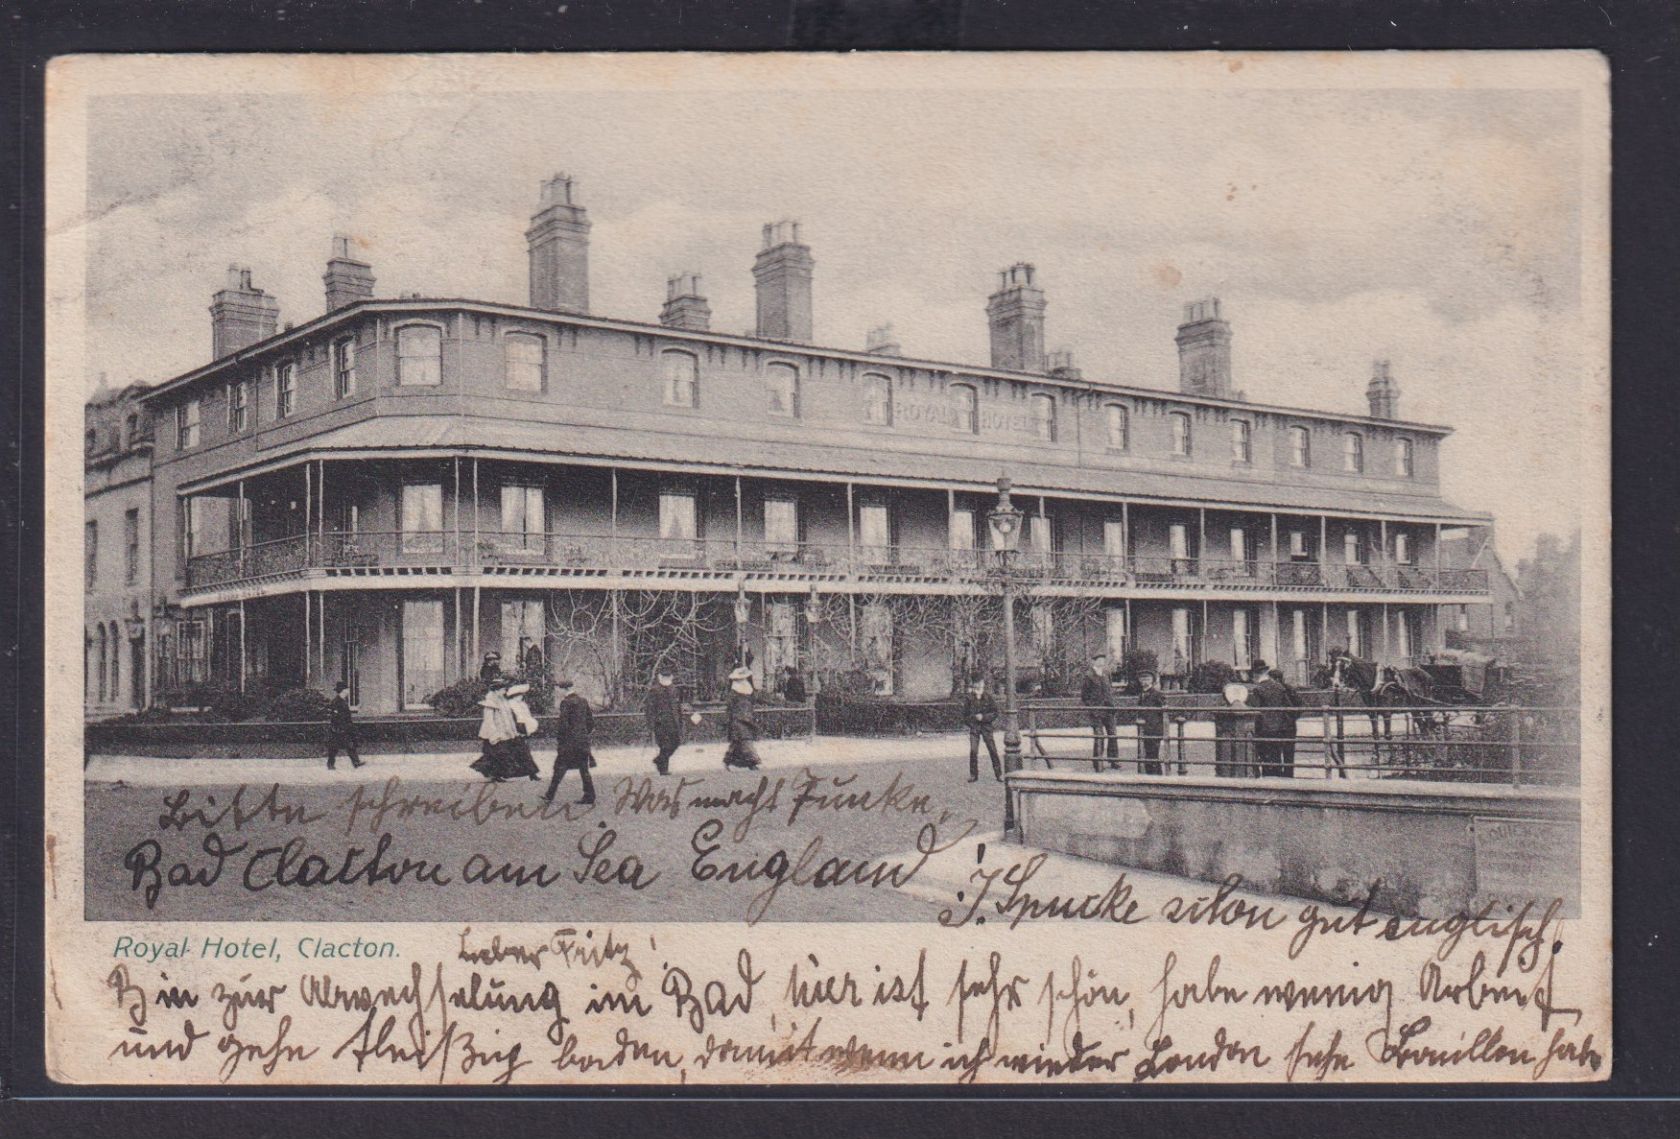 ROYAL HOTEL
Bitte schreiben. Was macht Funke.
Bad Clacton am Sea England
I. Spucke schon gut englisch.
Royal Hotel, Clacton.
Lieber Fritz!
Bin zür Abwechselüng im Bad, hier ist sehr schön, habe wenig Arbeit
und gehe fleißig baden, damit wenn ich wieder London sehe Bouillon habe